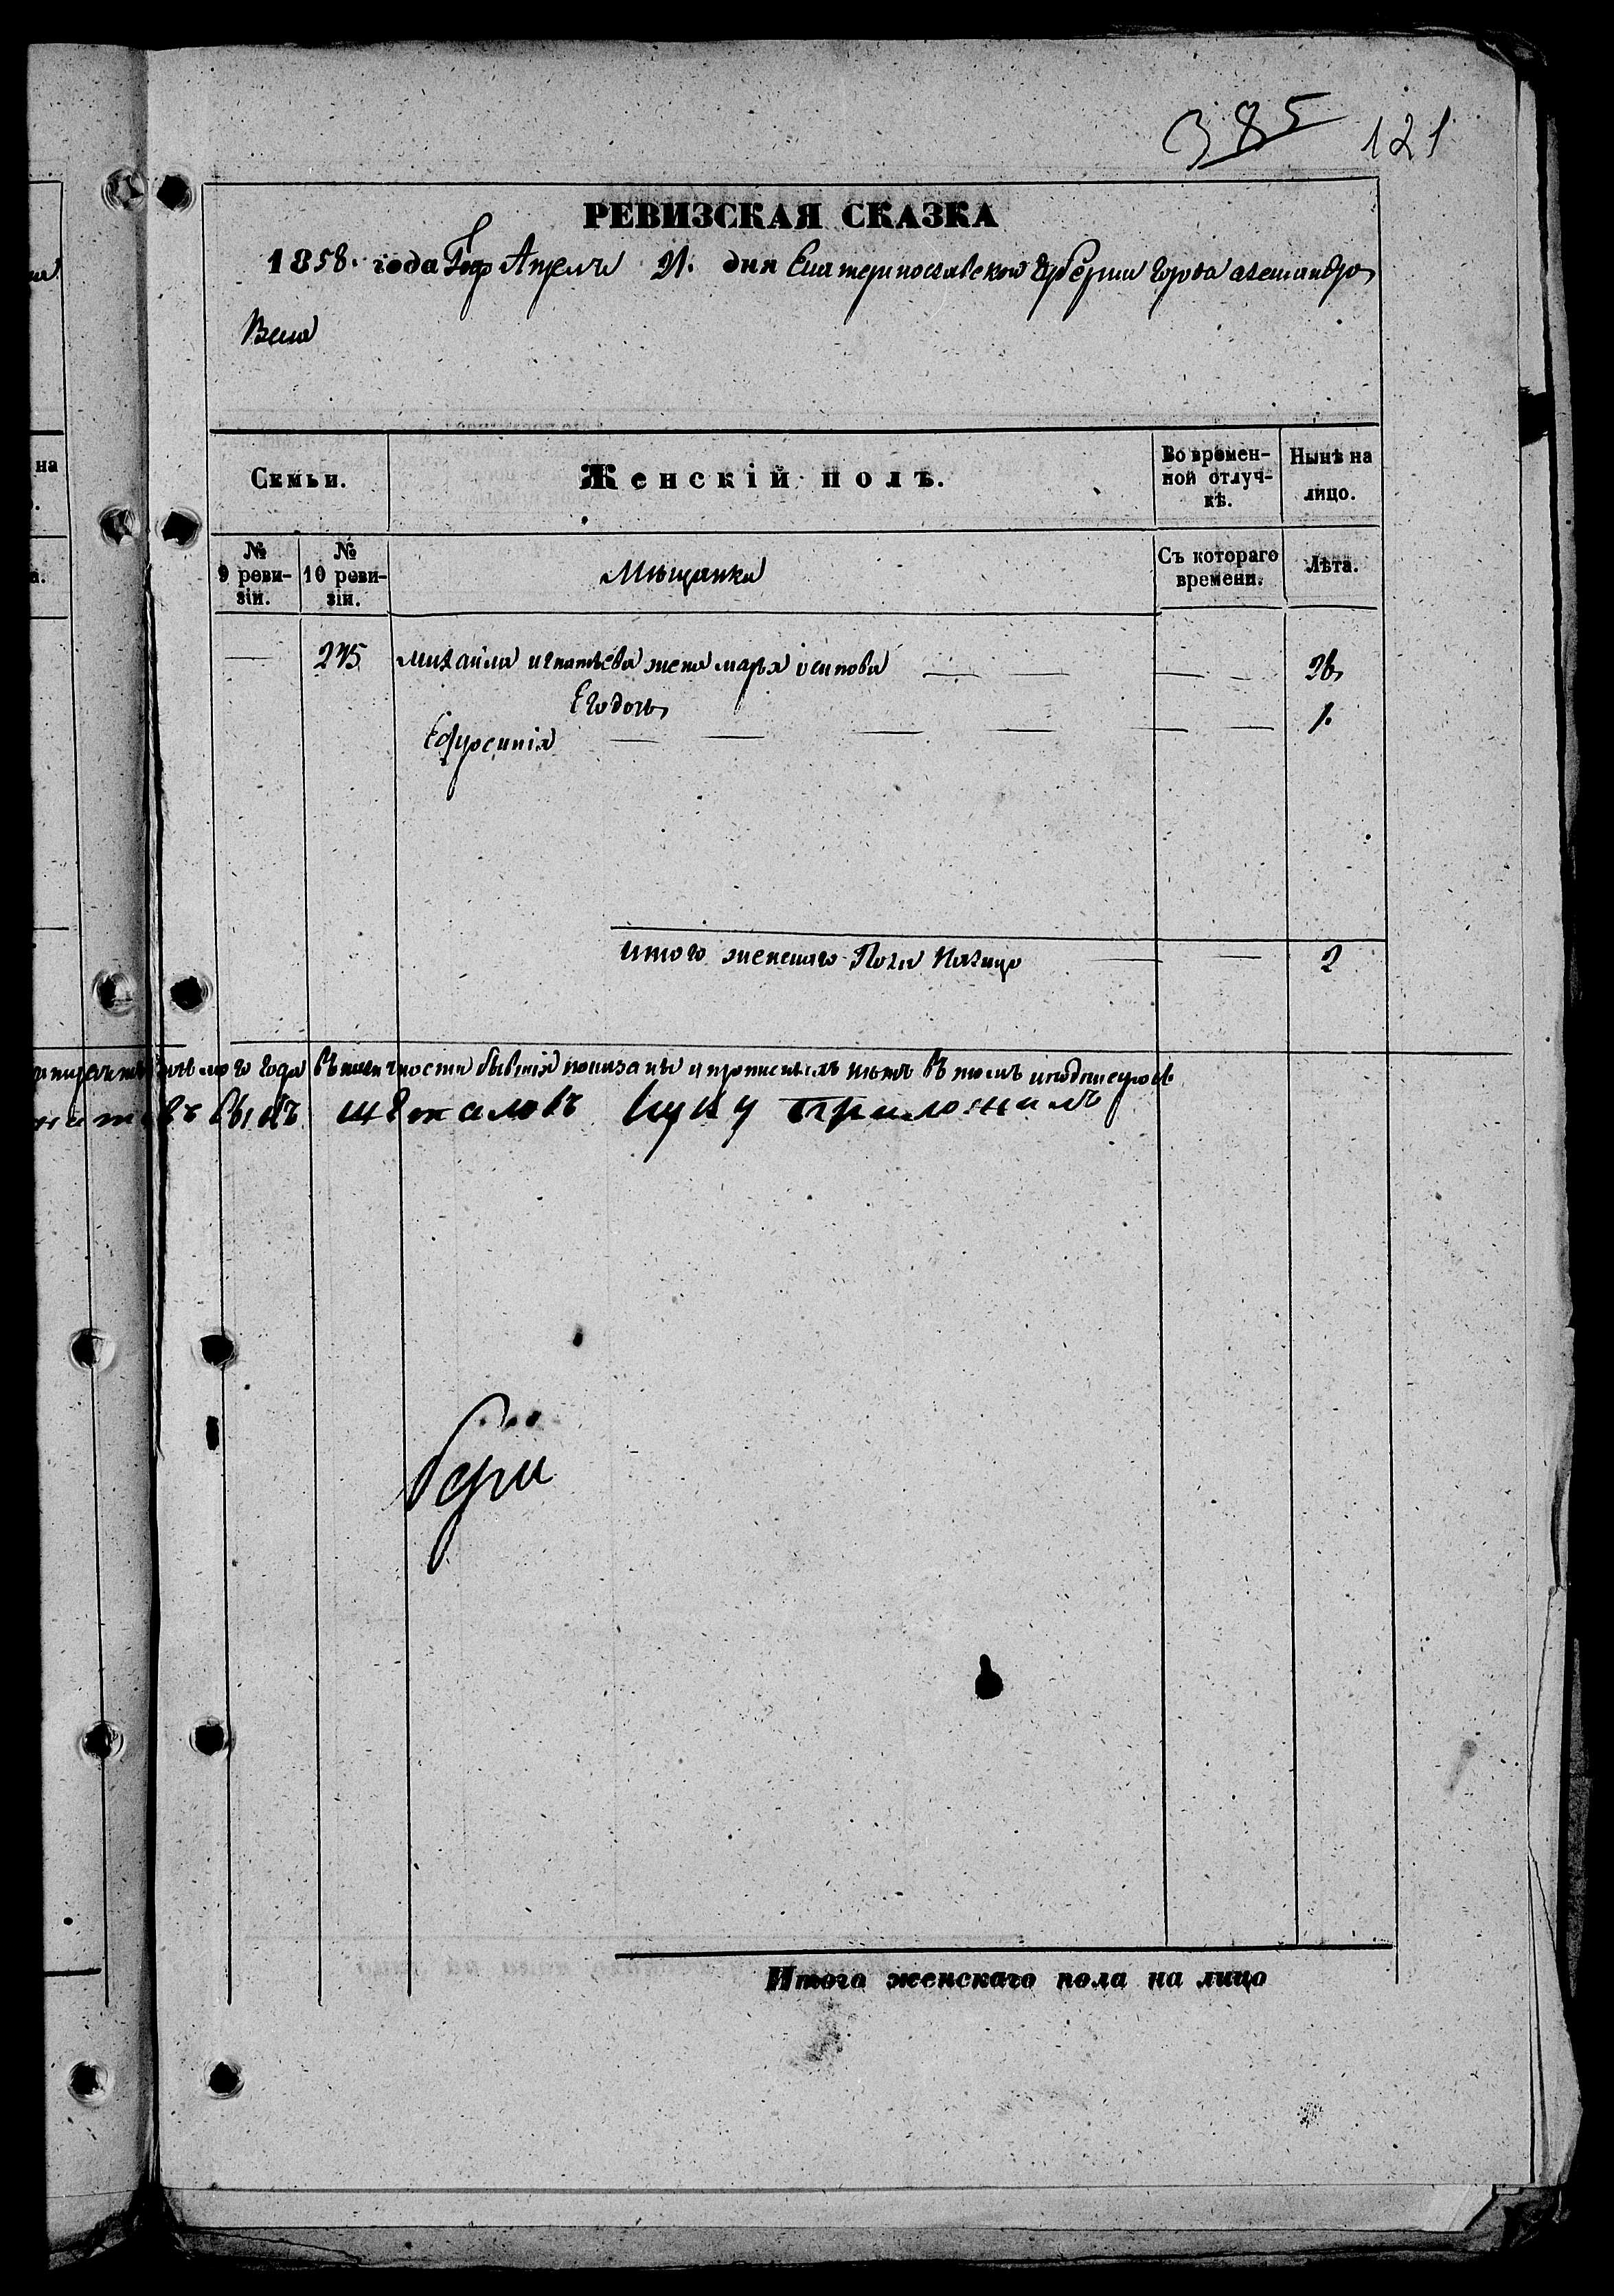 385 121
РЕВИЗСКАЯ СКАЗКА
1858. года Апреля 21. дня Екатеринославской Губернии Города александро
вска
на
Семьи.
Женскій полъ.
Во времен-
ной отлуч-
кѣ.
Нынѣ на
лицо.
№
9 реви-
зіи.
№
10 реви-
зіи.
Мещанка
Съ котораго
времени.
Лѣта.
275 михайла игнатьева жена марья осипова 26
Его дочь
Ефросинія 1.
итого женскаго Пола Налицо 2
года бывшія показаны и прописныхъ нетъ въ томъ и подписуюсь
руку приложилъ
Итого женскаго пола на лицо